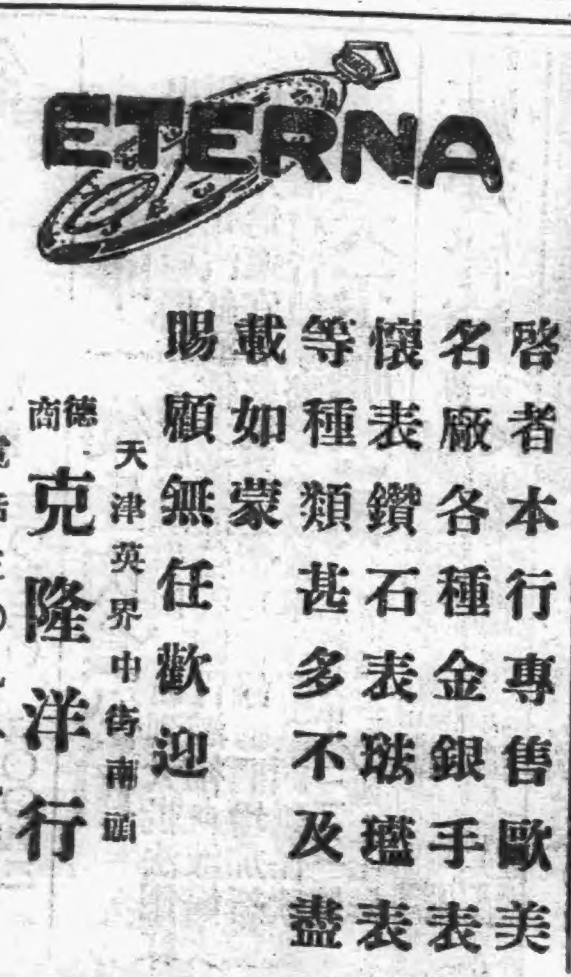 ETERNA
啓者本行專售歐美
名廠各種金銀手表
懷表鑽石表琺瓓表
等種類甚多不及盡
載如蒙
賜顧無任歡迎
天津英界中街南頭
德商
克隆洋行